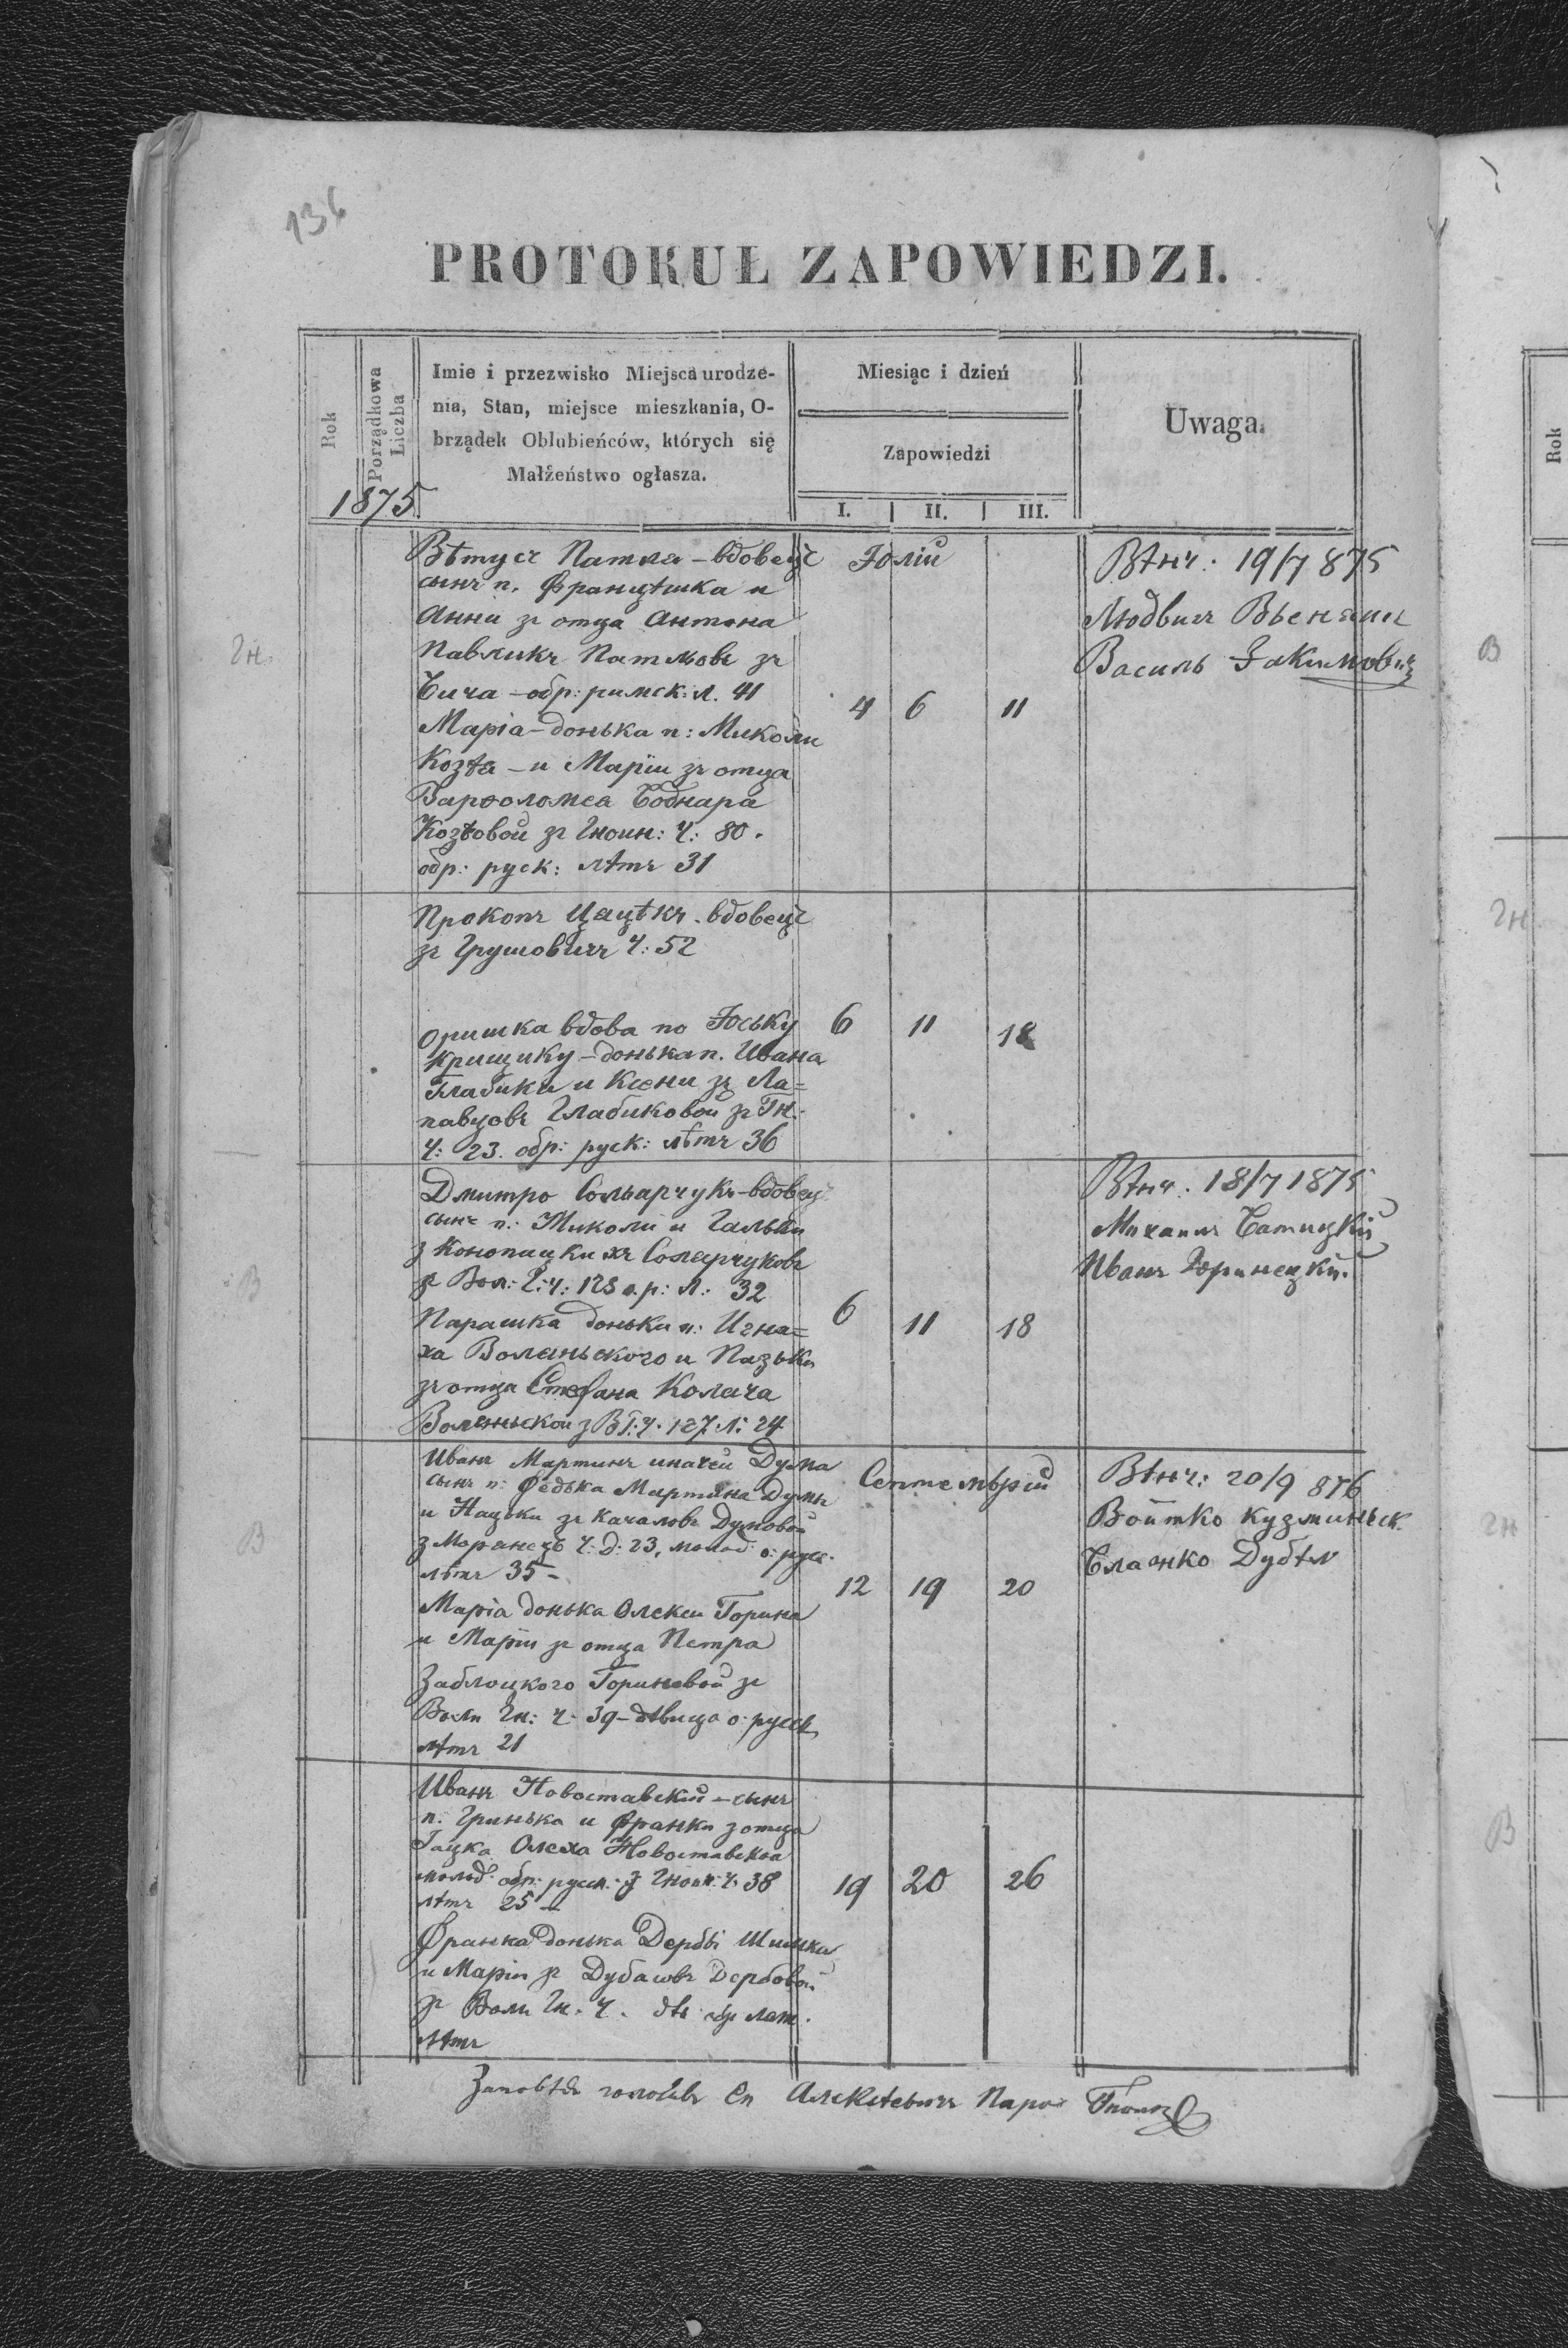 136
PROTOKUŁ ZAPOWIEDZI.
Rok
Porządkowa
Liczba
Imie i przezwisko Miejsca urodze-
nia, Stan, miejsce mieszkania, O-
brządek Oblubieńców, których się
Małżeństwo ogłasza.
Miesiąc i dzień
Zapowiedzi
I. II. III.
Uwaga.
1875
Гн.
Вѣтусъ Патла - вдовець
сынъ п. Францѣшка и
Анни зъ отца Антона
Павликъ Патловъ зъ
Бича - обр: римск: л. 41
Марія - донька п: Миколи
Козѣа - и Маріи зъ отца
Варѳоломеа Боднара
Козѣовой зъ Гноин: Ч: 80.
обр: руск: лѣтъ 31
Юлій
4 6 11
Вѣнч: 19/7 875
Людвигъ
Василь
Прокопъ Цацѣкъ - вдовець
зъ Грушовичъ Ч: 52
Оришка вдова по Юську
Крищику - донька п. Ивана
Глабика и Ксени зъ Ла=
павцовъ Глабиковой зъ Гн.
Ч: 23. обр: руск: лѣтъ 36
6 11 18
В
Дмитро Сольарчукъ - вдовець
сынъ п: Миколи и Гальки
з Конопицкихъ Соларчуковъ
зъ Вол: Г: ч: 128 о.р: Л: 32
Парашка донька п: Игна=
ха Воляньского и Пазьки
зъ отца Стефана Колача
Воляньской з В Г: ч. 127. Л: 24
6 11 18
Вѣнч: 18/7 1875
Михаилъ
Иванъ
В
Иванъ Мартинъ иначей Дума
сынъ п: Федька Мартина Думы
и Нацьки зъ Качаловъ Думовой
з Моранецъ Ч: д: 23, молод: о: руск.
лѣтъ 35 -
Марія донька Олекси Горина
и Маріи зъ отца Петра
Заблоцкого Гориновой зъ
Воли Гн: ч: 39 - дѣвица о: руск.
лѣтъ 21
Септемврій
12 19 20
Вѣнч: 20/9 876
Войтко Кузминьск.
Блажко Дубѣл
Иванъ Новоставскій - сынъ
п. Гринька и Франки з отца
Гацка Олеха Новоставска
молод. обр: руск: з Гноин: ч. 38
лѣтъ 25 -
Франка донька Дербы Шимка
и Маріи зъ Дубасовъ Дербовой
зъ Воли Гн. Ч. дѣ. обр лат.
лѣтъ
19 20 26
Заповѣди Ал Парох
Rok
В
Гн
Гн
В